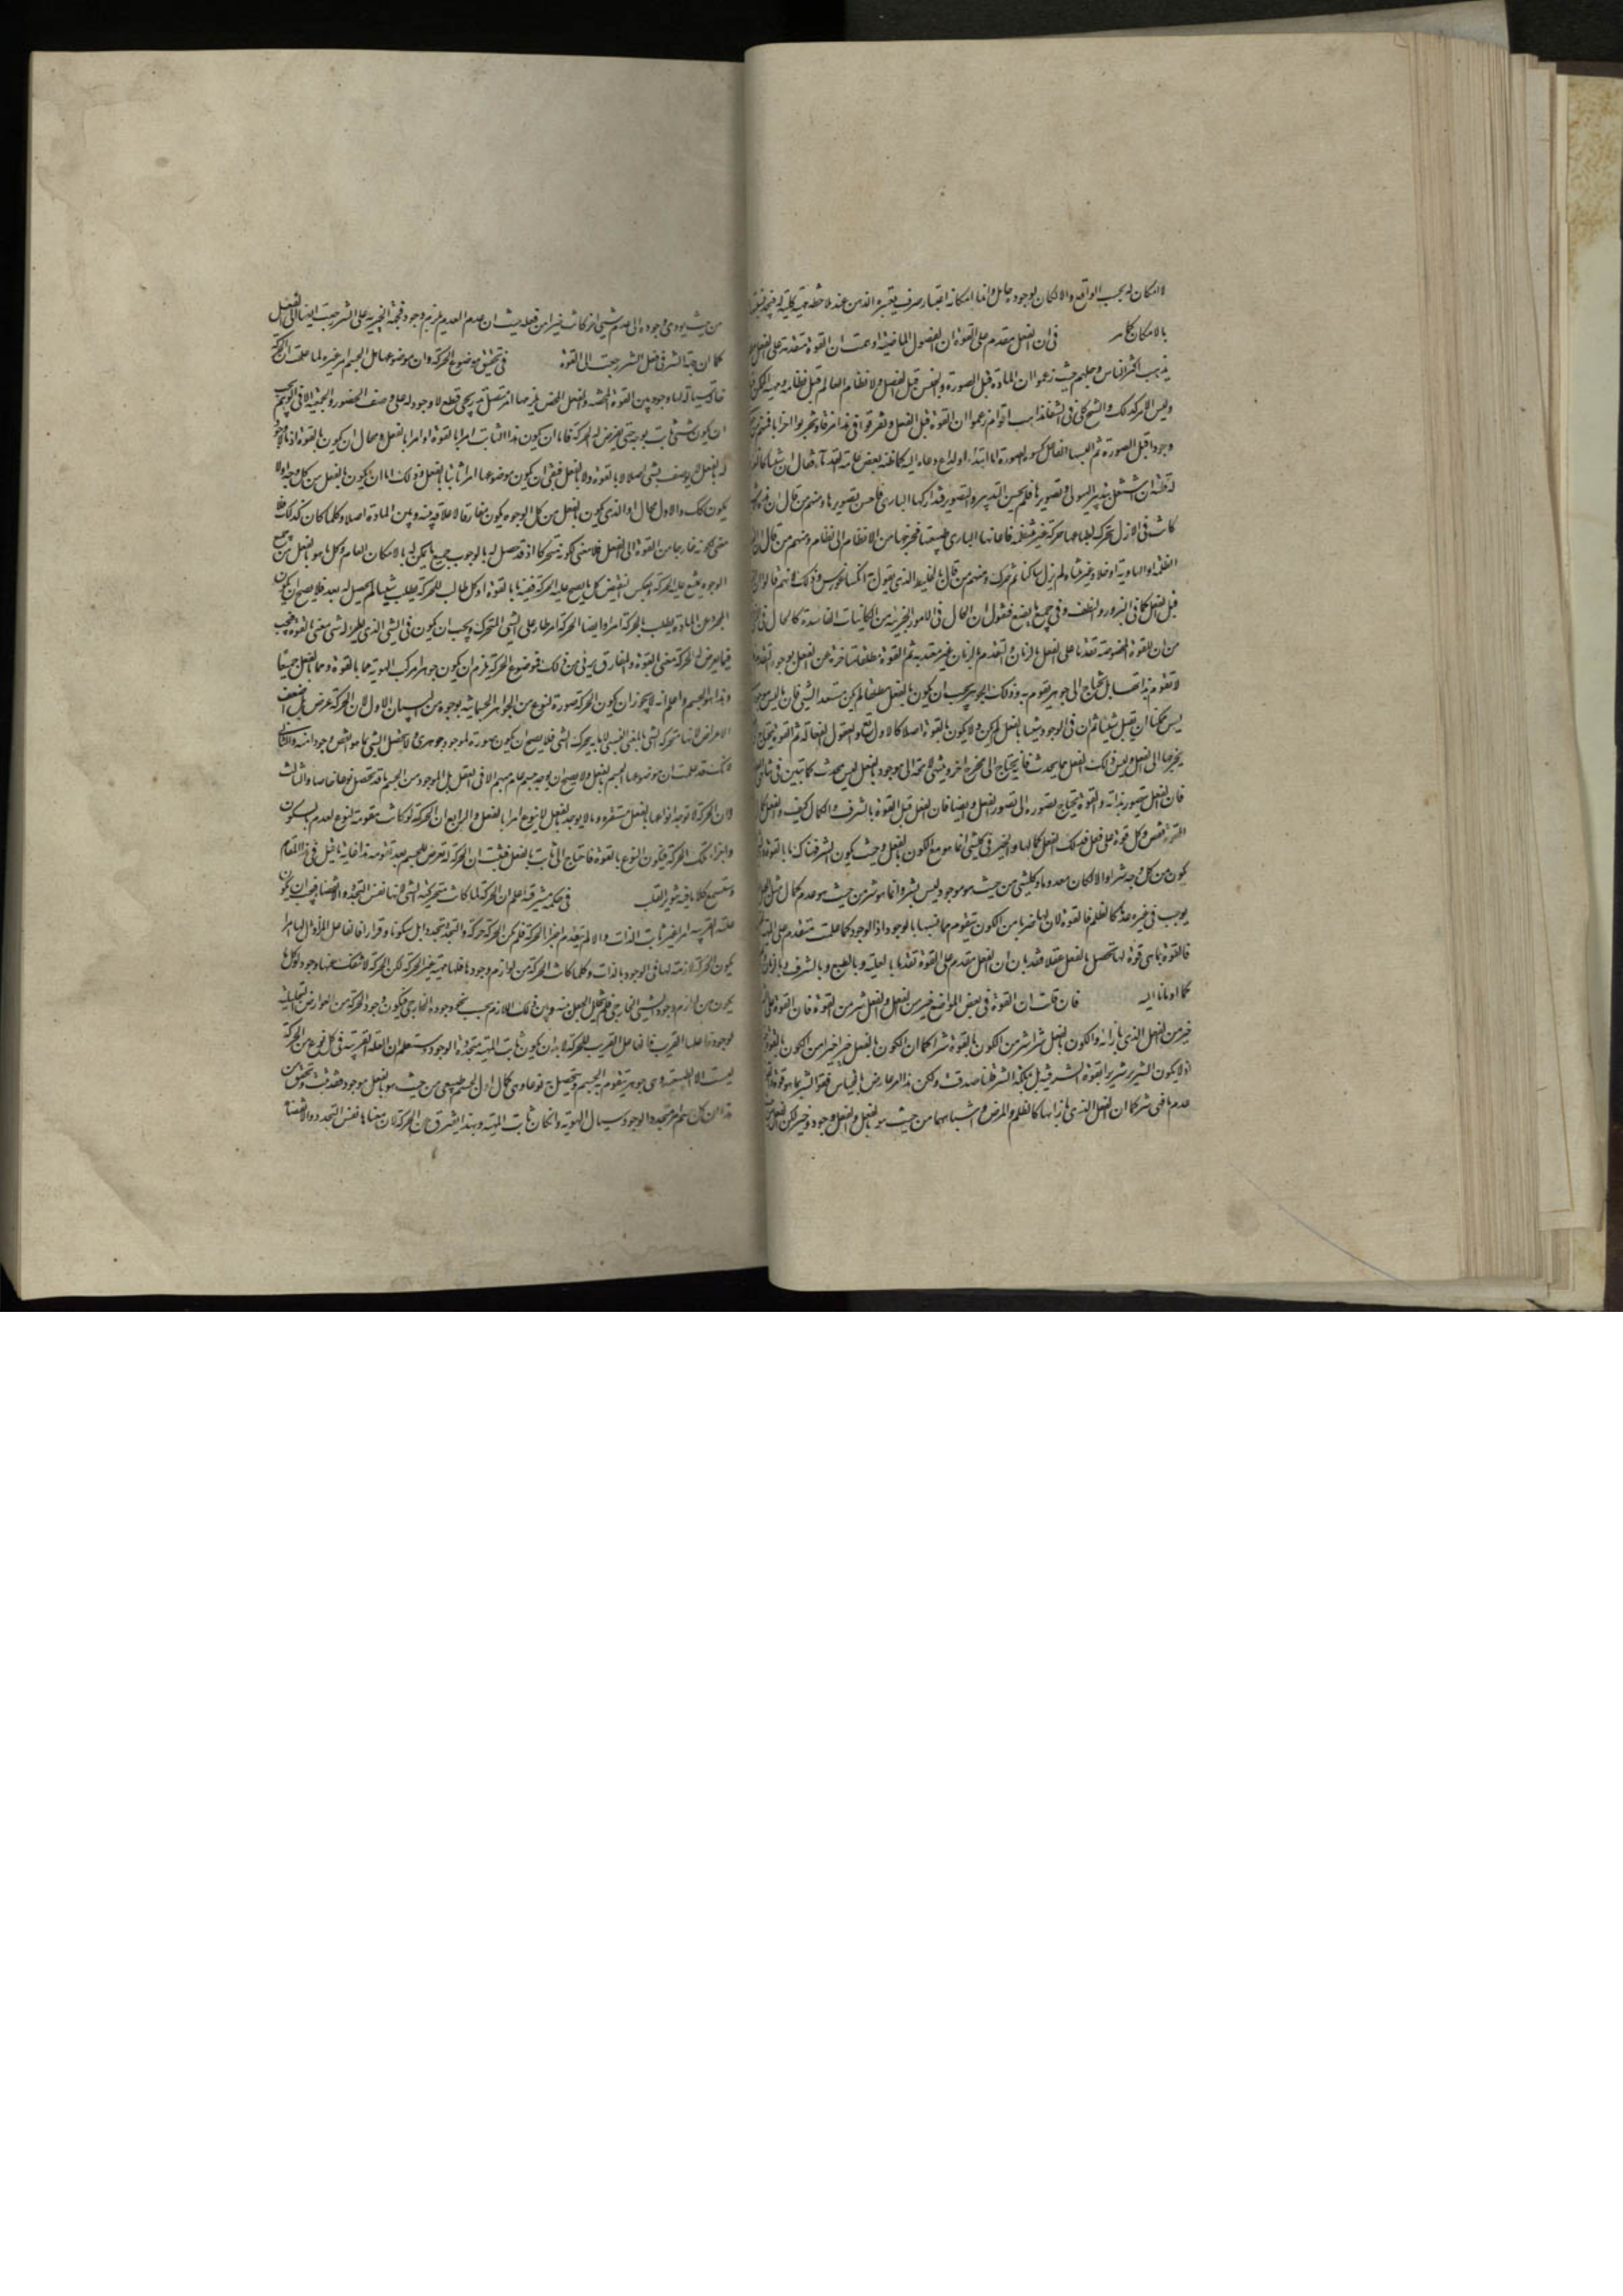 لا امكان له بحسب الواقع والامكان لوجود حامل وانما امكانه اعتبار صرف يعتبره الذهن عند ملاحظة مهية كلية
بالامكان فى ان الفعل مقدم على القوة ان الفصول الماضية اوهمت ان القوة متقدمة على الفعل
يذهب اكثر الناس وجلهم حيث زعموا ان المادة قبل الصورة والجنس قبل الفصل ولا نظام العالم قبل نظامه
وليس الامر كذلك والشيخ حكى فى الشفا مذاهب اقوام زعموا ان القوة قبل الفعل وتفرقوا فى هذا فرقا وتحزبوا احزابا فمنهم من
وجودا قبل الصورة ثم البسها الفاعل كسوة الصورة اما ابتداء او لداع دعاه اليه كما ظنه بعض عامة القدماء فقال ان شيئا كالنفس
له فلتة ان اشتغل بتدبير الهيولى وتصويرها فلم يحسن التدبير والتصوير فتداركها البارى فاحسن تصويرها ومنهم من قال ان
كانت فى الازل تتحرك بطباعها حركة غير منتظمة فاعانها البارى طبيعتها فخرجها من الانظام الى نظام ومنهم من قال ان
الظلمة او الهاوية او خلاء غير متناه لم يزل ساكنا ثم تحرك ومنهم من قال بالخليط الذى يقول به انكساغورس وذلك لانهم قالوا ان
قبل الفعل كما فى البزور والنطف وفى جميع ما يصنع فنقول ان الحال فى الامور الجزئية من الكاينات الفاسدة كالحال فى
من ان للقوة المخصوصة تقدما على الفعل بالزمان والتقدم بالزمان غير معتد به ثم القوة مطلقا متاخرة عن الفعل بوجوه التقدم
لا تقوم بذاتها بل تحتاج الى جوهر تقوم به وذلك الجوهر يجب ان يكون بالفعل مطلقا لم يكن مستعد لشئ فان ما ليس موجودا
ليس ممكنا ان يقبل شيئا ثم ان فى الوجود شيئا بالفعل لم يكن ولا يكون بالقوة اصلا كالاول تعالى والعقول الفعالة ثم القوة تحتاج
يخرجها الى الفعل وليس ذلك الفعل مما يحدث فانه يحتاج الى مخرج اخر وينتهى لا محالة الى موجود بالفعل ليس بمحدث كما تبين فى تناهى
فان الفعل يتصور بذاته والقوة تحتاج تصورها الى تصور الفعل وايضا فان الفعل قبل القوة بالشرف والكمال كيف والفعل كمال
القوة نقص وكل قوة على فعل فذلك الفعل كمالها والخير فى كل شئ انما هو مع الكون بالفعل وحيث يكون الشر فهناك ما بالقوة
يكون من كل وجه شرا والا لكان معدوما وكل شئ من حيث هو موجود ليس بشر وانما هو شر من حيث هو عدم كمال مثل
يوجب فى غيره عدما كالظلم فالقوة لان لها ضربا من الكون تتقوم ماهيتها بالوجود اذ الوجود كما علمت متقدم على
فالقوة بما هى قوة لها تحصل بالفعل عقلا فقد بان ان الفعل مقدم على القوة تقدما بالعلية وبالطبع وبالشرف وبالزمان
كما اومانا اليه فان قلت ان القوة فى بعض المواضع خير من الفعل والفعل شر من القوة فان القوة على
خير من الفعل الذى بازائه والكون بالفعل شرا شر من الكون بالقوة شرا كما ان الكون بالفعل خيرا خير من الكون بالقوة
اذ لا يكون الشرير شريرا بقوة الشر فيه بل بملكة الشر قلنا صدقت ولكن هذا امر عارض بالقياس فقوة الشر بما هو قوة
عدم ما فهى شر كما ان الفعل الذى بازائها كالظلم والمرض واشباههما من حيث هو بالفعل والفعل وجود وخير لكن الفعل
من حيث يودى وجوده الى عدم شئ اخر كانت خيرا من فعله حيث ان عدم العدم يلزم وجود فجهة الخيرية على الشر رجعت ايضا الى الفعل
كما ان جهة الشر فى فعل الشر رجعت الى القوة فى تحقيق موضوع الحركة وان موضوعها هل الجسم ام غيره لما علمت ان الحركة
حالة سيالة لها وجود بين القوة المحضة والفعل المحض يلزمها امر متصل تدريجى قطعى لا وجود له على وصف الحضور والجمعية الا فى الوهم يجب
ان يكون شئ ثابت بوجه حتى يعرض له الحركة فاما ان يكون هذا الثابت امرا بالقوة او امرا بالفعل ومحال ان يكون بالقوة اذ ما لا وجود
له بالفعل لا يوصف بشئ اصلا لا بالقوة ولا بالفعل فبقى ان يكون موضوعها امرا ثابتا بالفعل وذلك اما ان يكون بالفعل من كل وجه او لا
يكون كذلك والاول محال اذ الذى يكون بالفعل من كل الوجوه يكون مفارقا لا علاقة بينه وبين المادة اصلا وكلما كان كذلك فلا
معنى لكونه خارجا من القوة الى الفعل فلا معنى لكونه متحركا اذ قد حصل له بالوجوب جميع ما يمكن له بالامكان العام وكل ما هو بالفعل من جميع
الوجوه يمتنع عليه الحركة وبعكس النقيض كل ما يصح عليه الحركة ففيه ما بالقوة اذ كل طالب للحركة يطلب شيئا لم يحصل له بعد فلا يصح ان يكون
المجرد عن المادة يطلب بالحركة امرا وايضا الحركة امر طار على الشئ المتحرك ويجب ان يكون فى الشئ الذى يطرا له شئ معنى بالقوة فيجب
فيما يعرض له الحركة معنى القوة والمفارق برئ من ذلك فموضوع الحركة يلزم ان يكون جوهرا مركب الهوية مما بالقوة ومما بالفعل جميعا
وهذا هو الجسم واعلم انه لا يجوز ان يكون الحركة صورة لنوع من الجواهر الجسمانية بوجوه من البيان الاول ان الحركة عرض بل اضعف
الاعراض لانها متحركية الشئ بالمعنى النسبى لا ما به يتحرك الشئ فلا يصح ان يكون صورة لموجود جوهرى ولا محصل الشئ بما هو انقص وجودا منه والثانى
لانك قد علمت ان موضوعها الجسم بالفعل ولا يصح ان يوجد جسم عام مبهم الا فى العقل بل الموجود من الجسم ما قد تحصل نوعا خاصا والثالث
لان الحركة لا توجد انواعها بالفعل مستقرة وما لا يوجد بالفعل لا ينوع امرا بالفعل والرابع ان الحركة لو كانت مقومة لنوع لعدم بسكون
واجزاء تلك الحركة فيكون النوع بالقوة فاحتاج الى ثابت بالفعل فثبت ان الحركة تعرض للجسم بعد تقومه هذا غاية ما قيل فى هذا المقام
وستسمع كلاما فيه تنوير القلب فى حكمة مشرقية اعلم ان الحركة لما كانت متحركية الشئ لانها نفس التجدد والانقضا فيجب ان يكون
علته القريبة امرا غير ثابت الذات والا لم ينعدم اجزاء الحركة فلم يكن الحركة حركة والتجدد تجددا بل سكونا وقرارا فالفاعل المزاول لها امرا
يكون الحركة لازمة لها فى الوجود بالذات وكلما كانت الحركة من لوازم وجوده فله ماهية غير الحركة لكن الحركة لا تنفك عنها وجودا وكل ما
يكون من لوازم وجود الشئ الخارجى فلم يتخلل الجعل بينه وبين ذلك اللازم بحسب نحو وجوده الخارجى فيكون وجود الحركة من العوارض التحليلية
لوجود فاعلها القريب فالفاعل القريب للحركة لا بد ان يكون ثابت المهية متجدد الوجود وستعلم ان العلة القريبة فى كل نوع من الحركة
ليست الا الطبيعة وهى جوهر يتقوم به الجسم ويتحصل به نوعا وهى كمال اول لجسم طبيعى من حيث هو بالفعل موجود فقد ثبت وتحقق من
هذا ان كل جسم امر متجدد الوجود سيال الهوية وان كان ثابت المهية وبهذا يفترق عن الحركة لان معناها نفس التجدد والانقضا